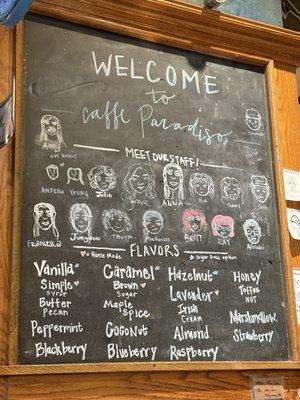 WELCOME
to
caffe Paradiso
MEET OUR STAFF!
AMY
ANDREW YOUNG Julia
ANNA
Francesca Junghoon
BRITT RAY
FLAVORS
♥ House Made * Sugar Free option
Vanilla * Caramel * Hazelnut * Honey
Simple Syrup Brown Sugar Lavender ♥ Toffee Nut
Butter Pecan Maple Spice Irish Cream Marshmallow
Peppermint Coconut Almond Strawberry
Blackberry Blueberry Raspberry